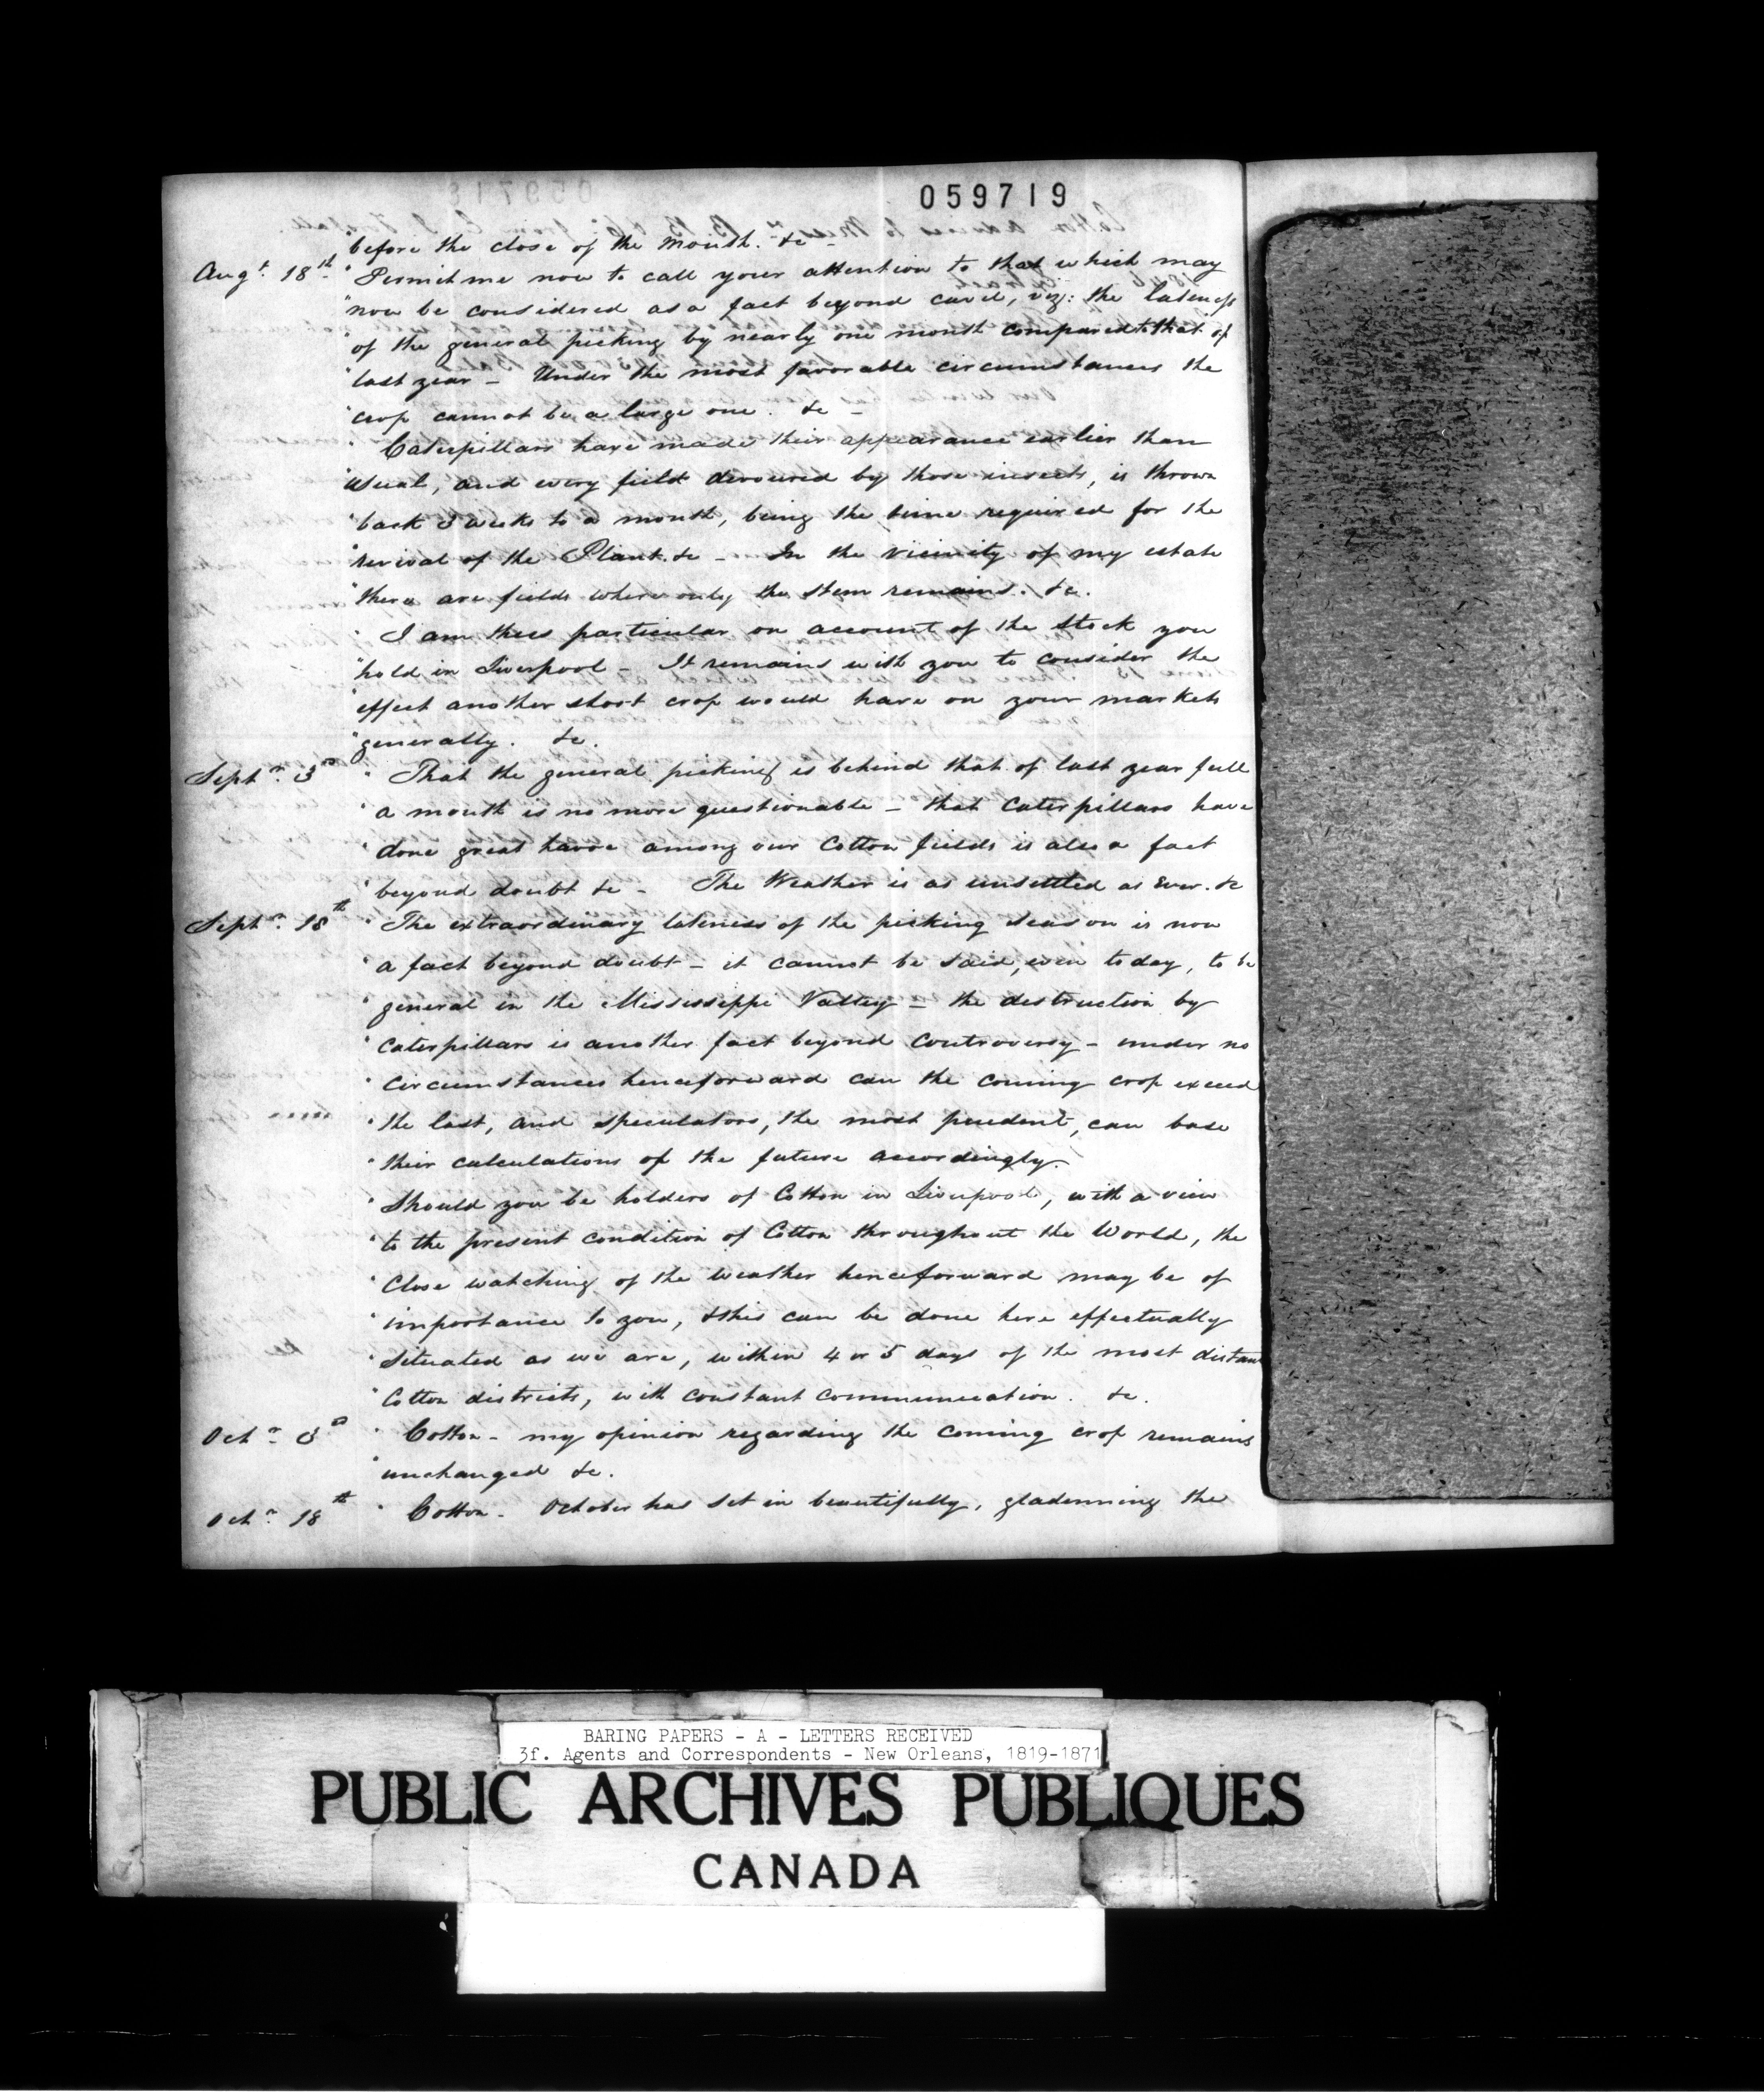 059719
before the close of the month. &c -
Augt. 18th " Permit me now to call your attention to that which may
" now be considered as a fact beyond cavil, viz: the lateness
" of the general picking by nearly one month compared to that of
" last year - Under the most favorable circumstances the
" crop cannot be a large one. &c -
" Caterpillars have made their appearance earlier than
" usual, and every field devoured by those insects, is thrown
" back 3 weeks to a month, being the time required for the
" revival of the Plant. &c - In the vicinity of my estate
" there are fields where only the stem remains. &c.
" I am thus particular on account of the stock you
" hold in Liverpool - It remains with you to consider the
" effect another short crop would have on your markets
" generally. &c.
Septr. 3d " That the general picking is behind that of last year full
" a month is no more questionable - that Caterpillars have
" done great havoc among our Cotton fields is also a fact
" beyond doubt &c - The Weather is as unsettled as Ever. &c
Septr. 18th " The extraordinary lateness of the picking season is now
" a fact beyond doubt - it cannot be said, even today, to be
" general in the Mississippi Valley - the destruction by
" Caterpillars is another fact beyond Controversy - under no
" Circumstances henceforward can the coming crop exceed
" the last, and speculators, the most prudent, can base
" their calculations of the future accordingly.
" Should you be holders of Cotton in Liverpool, with a view
" to the present condition of Cotton throughout the World, the
" Close watching of the weather henceforward may be of
" importance to you, & this can be done here effectually
" Situated as we are, within 4 or 5 days of the most distant
" Cotton districts, with constant communication. &c.
Octr. 3d " Cotton - my opinion regarding the coming crop remains
" unchanged &c.
Octr. 18th " Cotton - October has set in beautifully, gladenning the
BARING PAPERS - A - LETTERS RECEIVED
3f. Agents and Correspondents - New Orleans, 1819-1871
PUBLIC ARCHIVES PUBLIQUES
CANADA